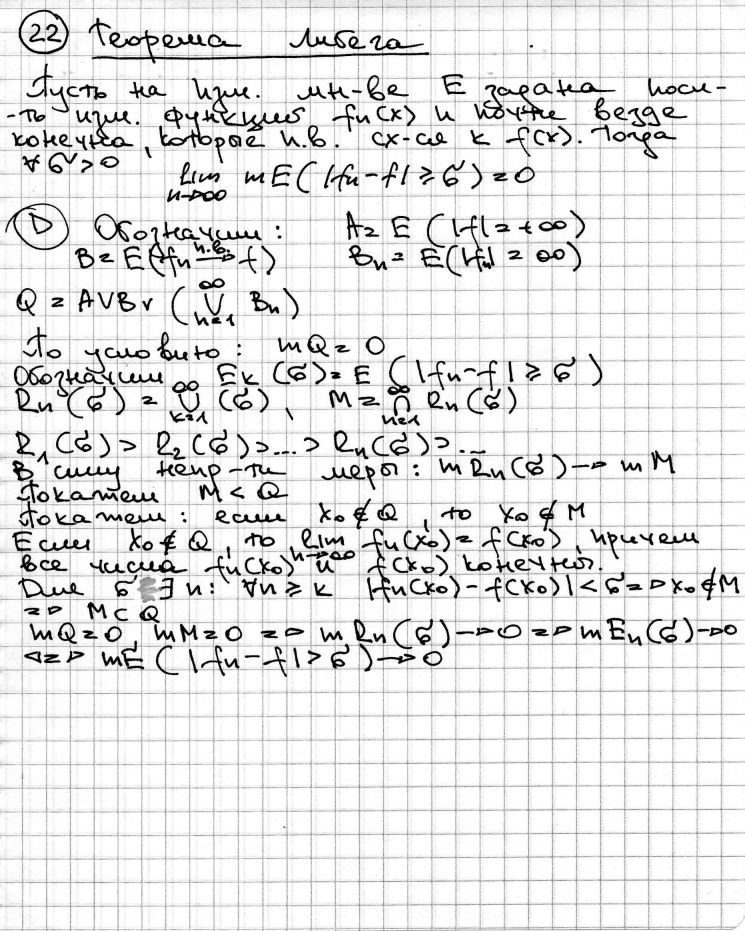 22 Теорема Лебега
Пусть на изм. мн-ве E задана посл-
-ть изм. функций fn(x) и почти везде
конечна, которые п.в. сх-ся к f(x). Тогда
∀ σ > 0
lim n→∞ mE(|fn - f| ≥ σ) = 0
D Обозначим: A = E (|f| = +∞)
B = E(fn п.в.→ f) Bn = E(|fn| = ∞)
Q = A∨B∨(∞∪n=1 Bn)
По условию: mQ = 0
Обозначим Ek(σ) = E (|fn - f| ≥ σ)
Rn(σ) = ∞∪k=1 (σ), M = ∞∩n=1 Rn(σ)
R1(σ) ⊃ R2(σ) ⊃ ... ⊃ Rn(σ) ⊃ ...
В силу непр-ти меры: m Rn(σ) → mM
Покажем M ⊂ Q
Покажем: если x0 ∉ Q, то x0 ∉ M
Если x0 ∉ Q, то lim n→∞ fn(x0) = f(x0), причем
все числа fn(x0) и f(x0) конечны.
Для σ ∃ n: ∀n ≥ k |fn(x0) - f(x0)| < σ => x0 ∉ M
=> M ⊂ Q
mQ = 0, mM = 0 => m Rn(σ) → 0 => m En(σ) → 0
<=> mE (|fn - f| > σ) → 0